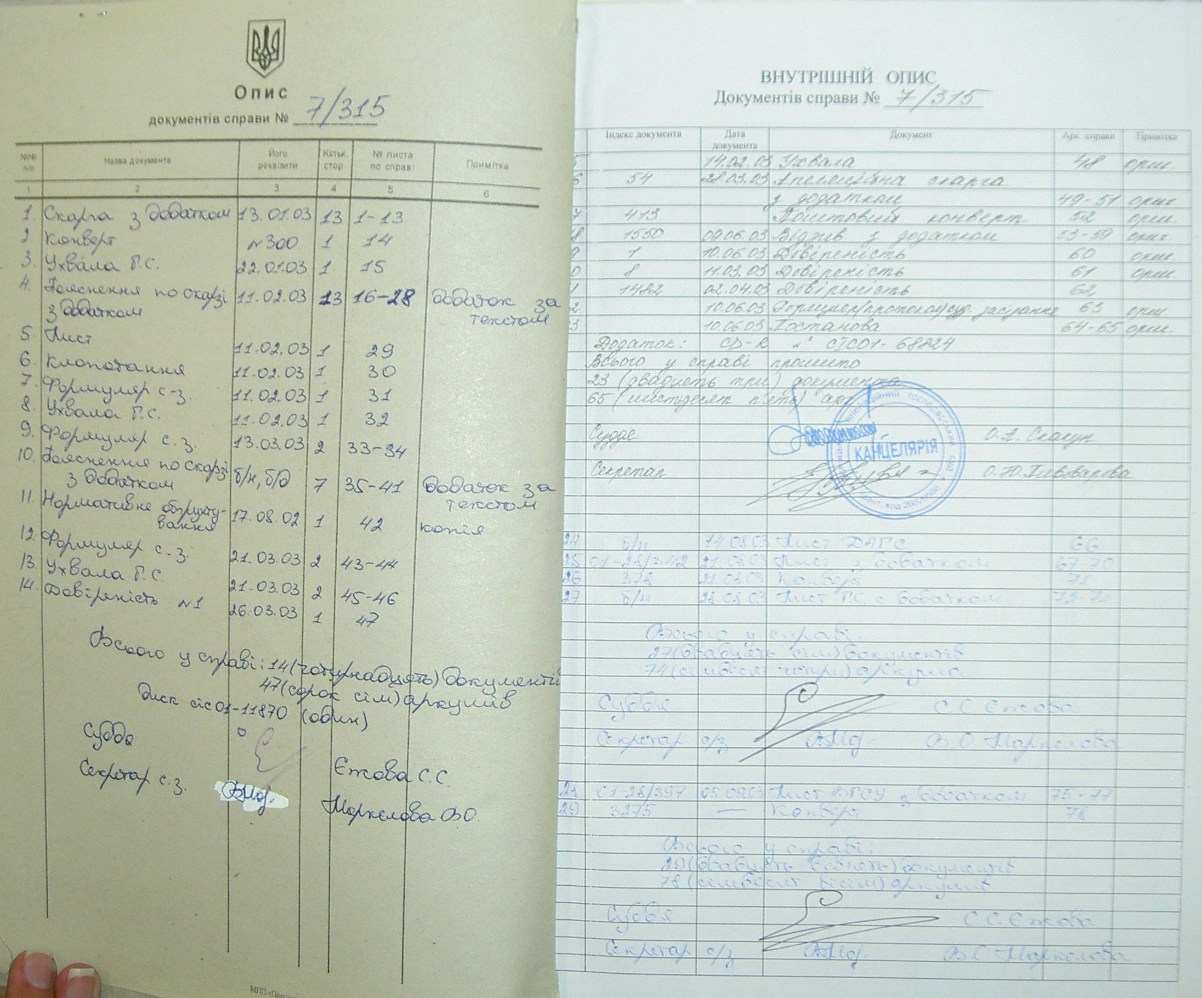 Опис
документів справи № 7/315
№№ п/п Назва документа Його реквізити Кільк. стор № листа по справі Примітка
1 2 3 4 5 6
1. Скарга з додатком 13.01.03 13 1-13
2. Конверт №300 1 14
3. Ухвала Г.С. 22.01.03 1 15
4. Пояснення по скарзі 11.02.03 13 16-28 додаток за
з додатком текстом
5. Лист 11.02.03 1 29
6. Клопотання 11.02.03 1 30
7. Формуляр с.з. 11.02.03 1 31
8. Ухвала Г.С. 11.02.03 1 32
9. Формуляр с.з. 13.03.03 2 33-34
10. Пояснення по скарзі б/н, б/д 7 35-41 додаток за
з додатком текстом
11. Нормативне обґрунту- 17.08.02 1 42 копія
вання
12. Формуляр с.з. 21.03.03 2 43-44
13. Ухвала Г.С. 21.03.03 2 45-46
14. Довіреність №1 26.03.03 1 47
Всього у справі: 14 (чотирнадцять) документів
47 (сорок сім) аркушів
Диск стс01-11870 (один)
Суддя Єжова С.С.
Секретар с.з. Маркелова В.О.
ВНУТРІШНІЙ ОПИС
Документів справи № 7/315
Індекс документа Дата документа Документ Арк. справи Примітка
5 14.02.03 Ухвала 48 ориг.
6 54 28.03.03 Апеляційна скарга
з додатком 49-51 ориг.
7 413 Поштовий конверт 52 ориг.
8 1550 09.06.03 Відгук з додатком 53-59 ориг.
9 1 10.06.03 Довіреність 60 ориг.
0 8 11.03.03 Довіреність 61 ориг.
1 1482 02.04.03 Довіреність 62
2 10.06.03 Формуляр/протокол/суд. засідання 63 ориг.
3 10.06.03 Постанова 64-65 ориг.
Додаток: CD-R СТС01-68824
Всього у справі прошито
23 (двадцять три) документа
65 (шістдесят п'ять) арк.
Суддя О.А. Скакун
КАНЦЕЛЯРІЯ
Секретар О.Ю. Пивоварова
24 б/н 14.08.03 Лист ДАГС 66
25 21.08.03 Лист з додатком 67-70
26 378 21.08.03 Конверт 71
27 б/н Лист ГС з додатком
Всього у справі:
27 (двадцять сім) документів
74 (сімдесят чотири) аркуша
Суддя С.С. Єжова
Секретар с/з В.О. Маркелова
28 01-28/397 05.09.03 Лист ВГСУ з додатком 75-77
29 3275 — Конверт 78
Всього у справі:
29 (двадцять дев'ять) документів
78 (сімдесят вісім) аркушів
Суддя С.С. Єжова
Секретар с/з В.О. Маркелова